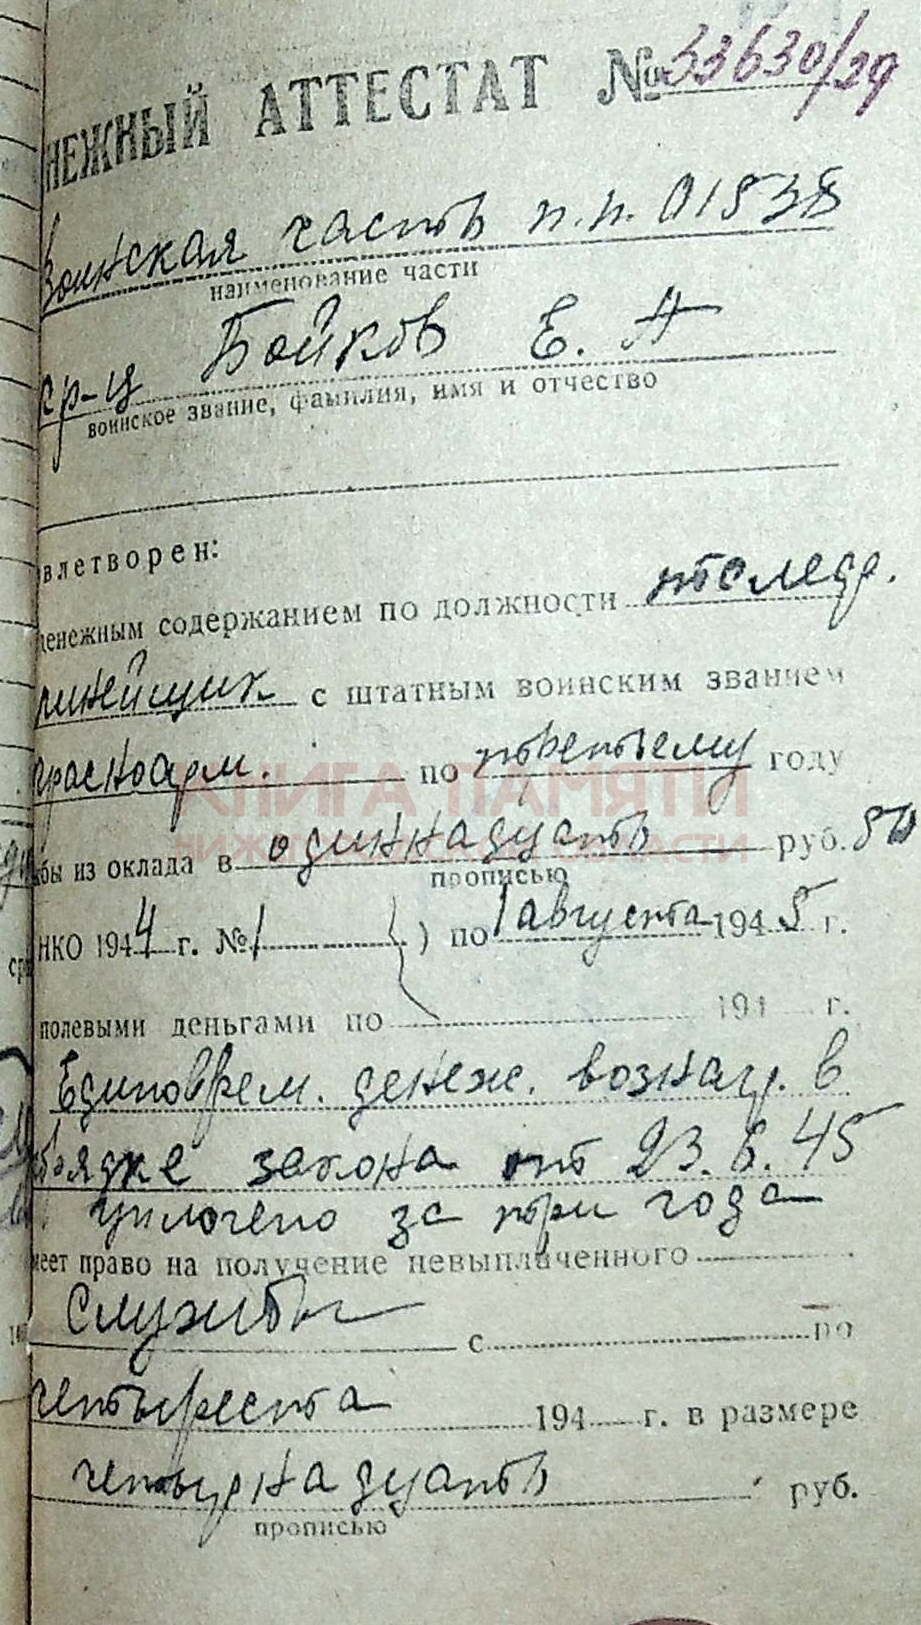 НЕЖНЫЙ АТТЕСТАТ № 33630/29
Воинская часть п.п. 01538
наименование части
кр-ц Бойков Е. А
воинское звание, фамилия, имя и отчество
влетворен:
денежным содержанием по должности телеф.
линейщик с штатным воинским званием
красноарм. по третьему году
КНИГА ПАМЯТИ
НИЖЕГОРОДСКОЙ ОБЛАСТИ
жбы из оклада в одиннадцать руб. 50
прописью
НКО 1944 г. № 1 ) по 1 августа 1945 г.
полевыми деньгами по 194 г.
Единоврем. денеж. вознагр. в
порядке закона от 23.6.45
уплочено за три года
меет право на получение невыплаченного
службы с по
четыреста 194 г. в размере
четырнадцать руб.
прописью